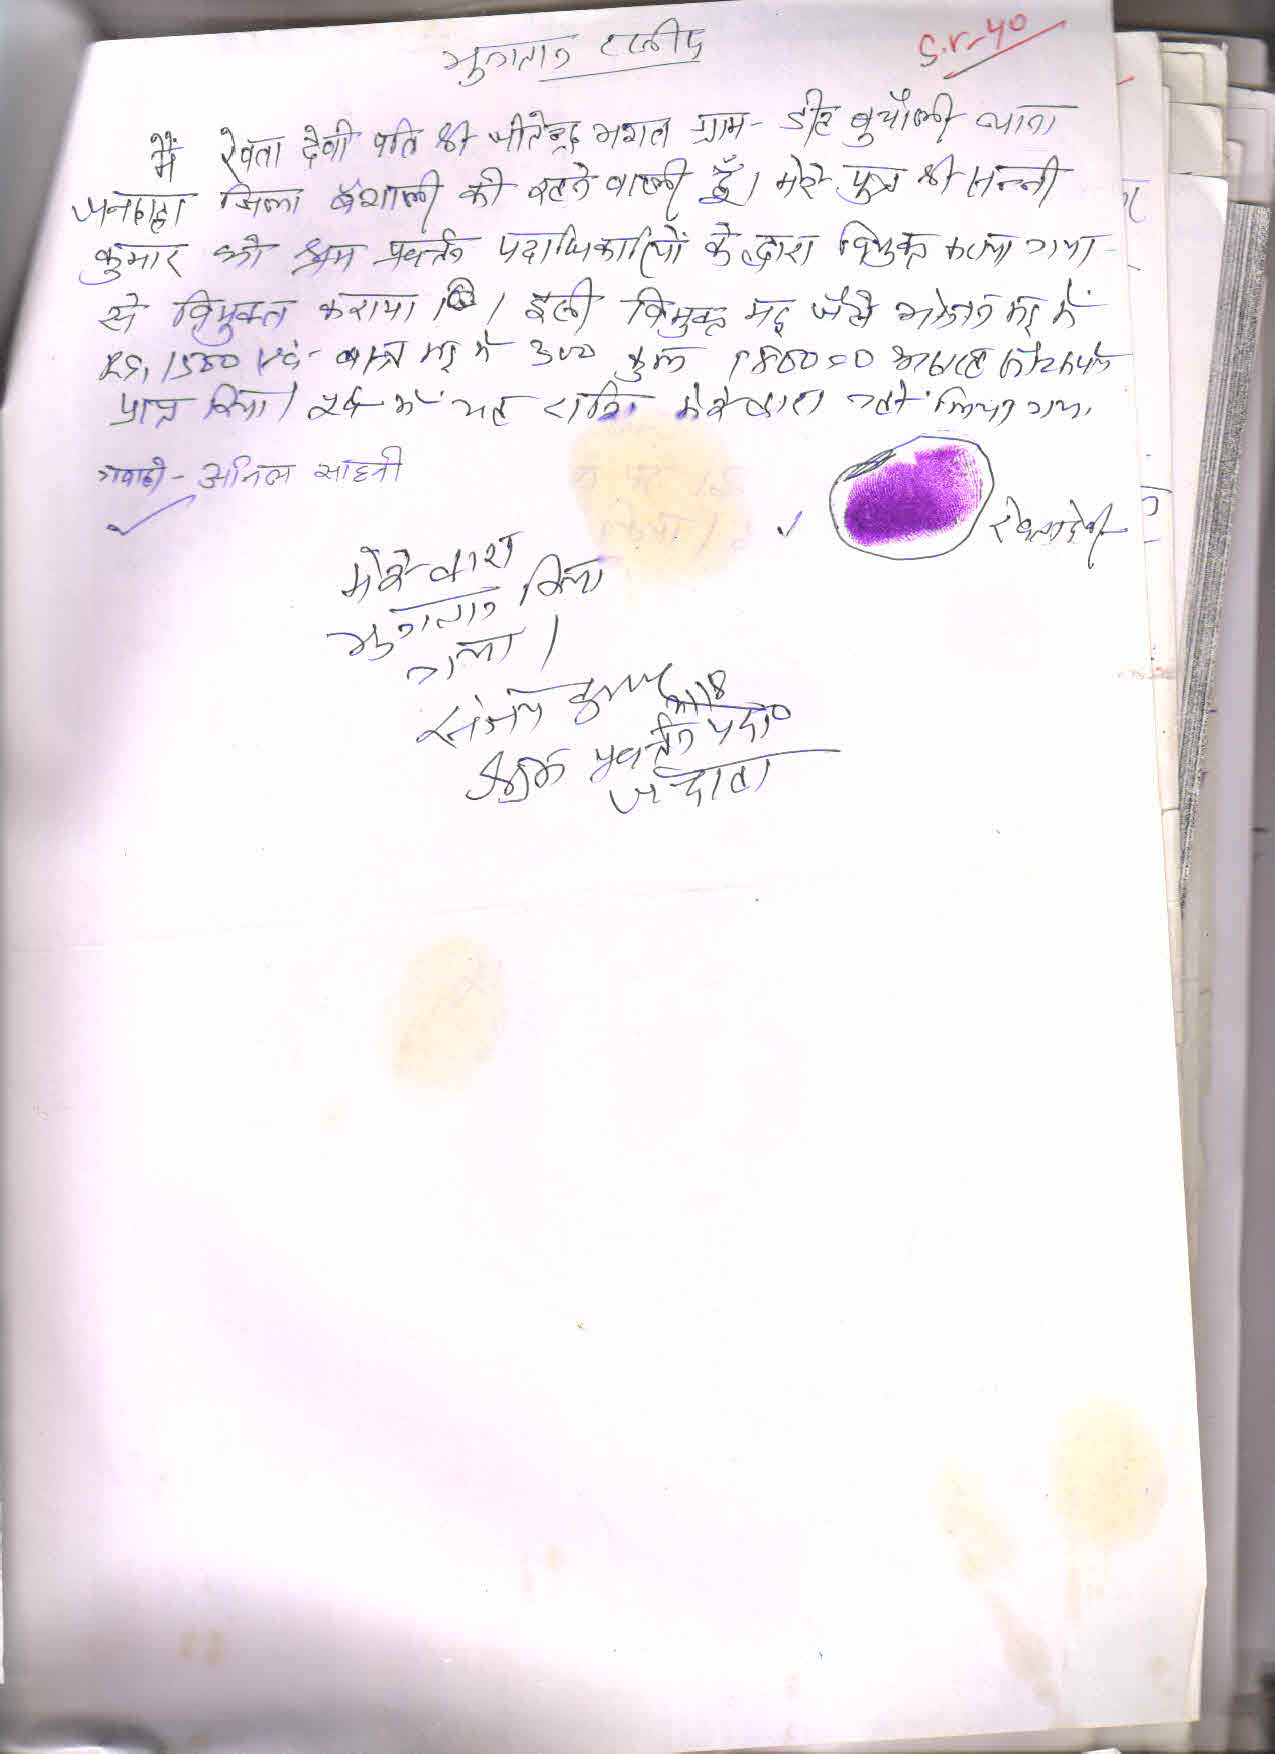 भुगतान रसीद
S.r-40
मैं रेवता देवी पति श्री जीतेन्द्र भगत ग्राम- डीह बुचौली थाना
जन्दाहा जिला वैशाली की रहने वाली हूँ। मेरे पुत्र श्री सन्नी
कुमार को श्रम प्रवर्तन पदाधिकारियों के द्वारा विमुक्त कराया गया
से विमुक्त कराया । इसी विमुक्त मद जैसे भोजन मद में
RS, 1500 एवं- वस्त्र मद में 300 कुल 1800=0 अठारह सौ रुपये
प्राप्त किया। पूर्व में यह राशि मेरे द्वारा नहीं लिया गया।
गवाही- अनिल साहनी
रेवता देवी
मेरे द्वारा
भुगतान किया
गया।
संजय कुमार
श्रम प्रवर्तन पदा०
जन्दाहा